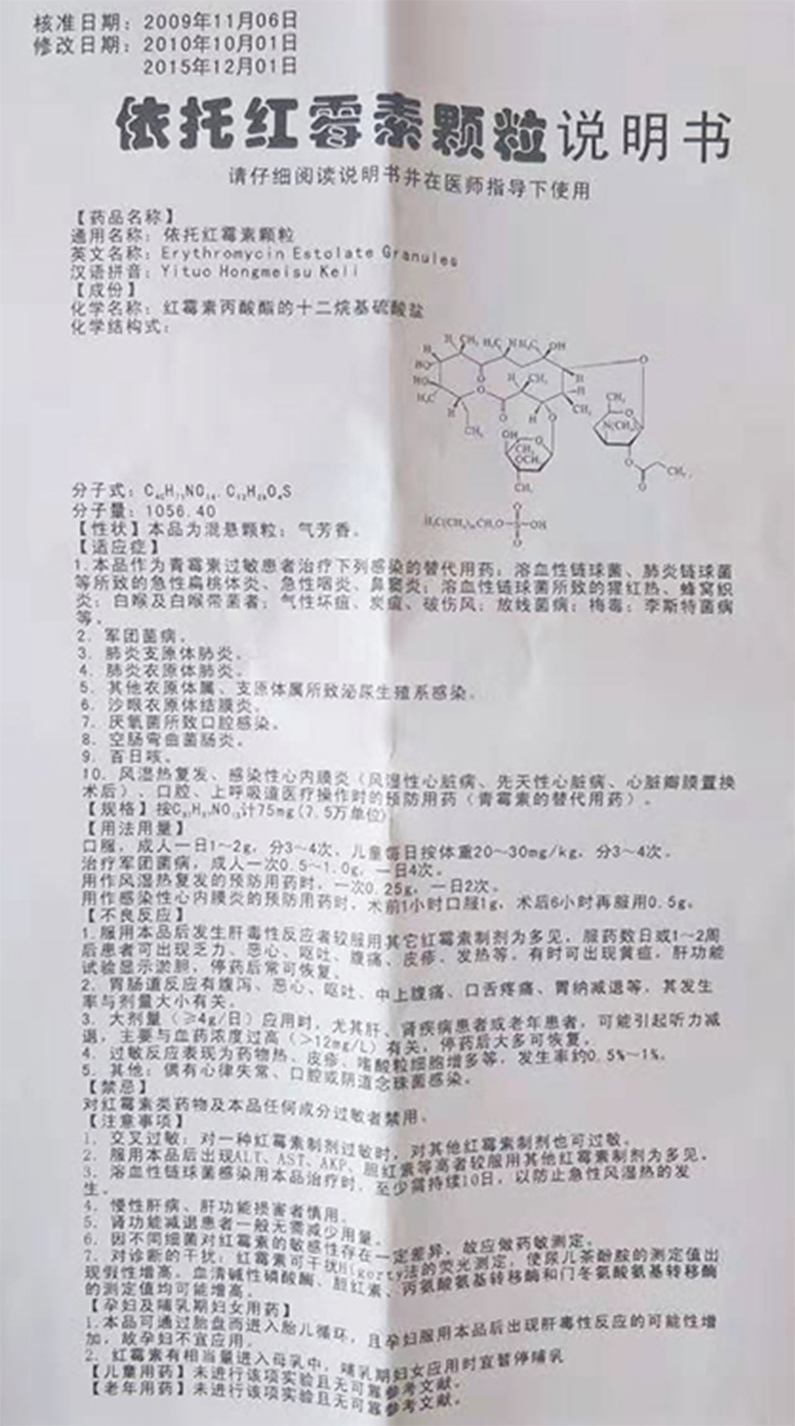 核准日期：2009年11月06日
修改日期：2010年10月01日
2015年12月01日
依托红霉素颗粒说明书
请仔细阅读说明书并在医师指导下使用
【药品名称】
通用名称：依托红霉素颗粒
英文名称：Erythromycin Estolate Granules
汉语拼音：Yituo Hongmeisu Keli
【成份】
化学名称：红霉素丙酸酯的十二烷基硫酸盐
化学结构式：
分子式：C₄₀H₇₁NO₁₄·C₁₂H₂₆O₄S
分子量：1056.40
【性状】本品为混悬颗粒；气芳香。
【适应症】
1.本品作为青霉素过敏患者治疗下列感染的替代用药：溶血性链球菌、肺炎链球菌
等所致的急性扁桃体炎、急性咽炎、鼻窦炎；溶血性链球菌所致的猩红热、蜂窝织
炎；白喉及白喉带菌者；气性坏疽、炭疽、破伤风；放线菌病；梅毒；李斯特菌病
等。
2．军团菌病。
3．肺炎支原体肺炎。
4．肺炎衣原体肺炎。
5．其他衣原体属、支原体属所致泌尿生殖系感染。
6．沙眼衣原体结膜炎。
7．厌氧菌所致口腔感染。
8．空肠弯曲菌肠炎。
9．百日咳。
10．风湿热复发、感染性心内膜炎（风湿性心脏病、先天性心脏病、心脏瓣膜置换
术后）、口腔、上呼吸道医疗操作时的预防用药（青霉素的替代用药）。
【规格】按C₃₇H₆₇NO₁₃计75mg(7.5万单位)
【用法用量】
口服，成人一日1～2g，分3～4次。儿童每日按体重20～30mg/kg，分3～4次。
治疗军团菌病，成人一次0.5～1.0g，一日4次。
用作风湿热复发的预防用药时，一次0.25g，一日2次。
用作感染性心内膜炎的预防用药时，术前1小时口服1g，术后6小时再服用0.5g。
【不良反应】
1.服用本品后发生肝毒性反应者较服用其它红霉素制剂为多见，服药数日或1～2周
后患者可出现乏力、恶心、呕吐、腹痛、皮疹、发热等。有时可出现黄疸，肝功能
试验显示淤胆，停药后常可恢复。
2．胃肠道反应有腹泻、恶心、呕吐、中上腹痛、口舌疼痛、胃纳减退等，其发生
率与剂量大小有关。
3．大剂量（≥4g/日）应用时，尤其肝、肾疾病患者或老年患者，可能引起听力减
退，主要与血药浓度过高（＞12mg/L）有关，停药后大多可恢复。
4．过敏反应表现为药物热、皮疹、嗜酸粒细胞增多等，发生率约0.5%～1%。
5．其他：偶有心律失常、口腔或阴道念珠菌感染。
【禁忌】
对红霉素类药物及本品任何成分过敏者禁用。
【注意事项】
1．交叉过敏：对一种红霉素制剂过敏时，对其他红霉素制剂也可过敏。
2．服用本品后出现ALT、AST、AKP、胆红素等高者较服用其他红霉素制剂为多见。
3．溶血性链球菌感染用本品治疗时，至少需持续10日，以防止急性风湿热的发
生。
4．慢性肝病、肝功能损害者慎用。
5．肾功能减退患者一般无需减少用量。
6．因不同细菌对红霉素的敏感性存在一定差异，故应做药敏测定。
7．对诊断的干扰：红霉素可干扰Higerty法的荧光测定，使尿儿茶酚胺的测定值出
现假性增高。血清碱性磷酸酶、胆红素、丙氨酸氨基转移酶和门冬氨酸氨基转移酶
的测定值均可能增高。
【孕妇及哺乳期妇女用药】
1.本品可通过胎盘而进入胎儿循环，且孕妇服用本品后出现肝毒性反应的可能性增
加，故孕妇不宜应用。
2．红霉素有相当量进入母乳中，哺乳期妇女应用时宜暂停哺乳
【儿童用药】未进行该项实验且无可靠参考文献。
【老年用药】未进行该项实验且无可靠参考文献。